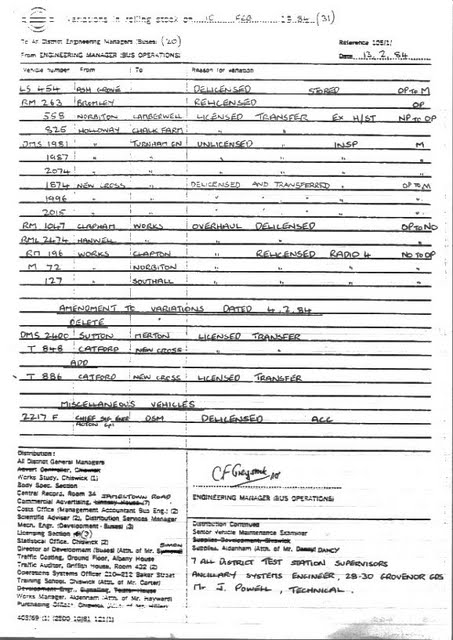 variations in rolling stock on 15 FEB 1984 (31)
To All District Engineering Managers (Buses) (20) Reference 105/1/
From ENGINEERING MANAGER (BUS OPERATIONS) Date 13.2.84
Vehicle number From To Reason for variation
LS 454 ASH GROVE DELICENSED STORED OP TO M
RM 263 BROMLEY RELICENSED OP
558 NORBITON CAMBERWELL LICENSED TRANSFER EX H/ST NP TO OP
825 HOLLOWAY CHALK FARM " "
DMS 1981 " TURNHAM GN UNLICENSED " INSP M
1987 " " " " " "
2074 " " " " " "
1874 NEW CROSS " DELICENSED AND TRANSFERRED " OP TO M
1996 " " " " " "
2015 " " " " " "
RM 1047 CLAPHAM WORKS OVERHAUL DELICENSED OP TO NO
RML 2474 HANWELL " " " "
RM 196 WORKS CLAPTON " RELICENSED RADIO 4 NO TO OP
M 72 " NORBITON " " "
127 " SOUTHALL " " "
AMENDMENT TO VARIATIONS DATED 4.2.84
DELETE
DMS 2400 SUTTON MERTON LICENSED TRANSFER
T 848 CATFORD NEW CROSS " "
ADD
T 886 CATFORD NEW CROSS LICENSED TRANSFER
MISCELLANEOUS VEHICLES
2217 F CHIEF OSM DELICENSED ACC
ACTON
Distribution:
All District General Managers
Works Study, Chiswick (1)
Body Spec. Section
Central Record, Room 34 JAMESTOWN ROAD
Commercial Advertising, (7)
Costs Office (Management Accountant Bus Eng.) (2)
Scientific Adviser (2), Distribution Services Manager
Mech. Engr. (Development - Buses) (3)
Licensing Section (3)
Statistical Office, Chiswick (2)
Director of Development (Buses) (Attn. of Mr. SIMON)
Traffic Costing, Ground Floor, Albany House
Traffic Auditor, Griffith House, Room 432 (2)
Operations Systems Officer 210-212 Baker Street
Training School, Chiswick (Attn. of Mr. Carter)
Works Manager, Aldenham (Attn. of Mr. Hayworth)
Purchasing (Attn. of Mr.
ENGINEERING MANAGER (BUS OPERATIONS)
Distribution Continued
Senior Vehicle Maintenance Examiner
Supplies Development Chiswick
Supplies, Aldenham (Attn. of Mr. DANCY)
7 ALL DISTRICT TEST STATION SUPERVISORS
ANCILLARY SYSTEMS ENGINEER, 28-30 GROVENOR GDS
Mr J. POWELL, TECHNICAL.